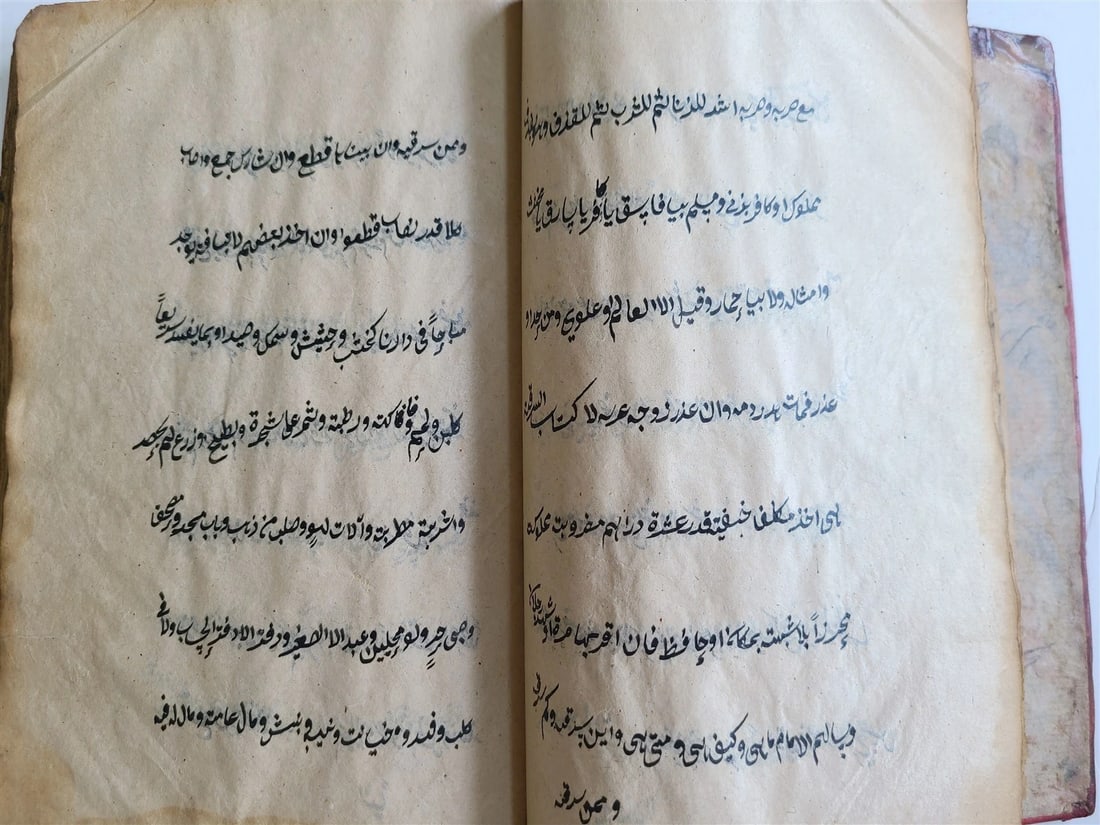 مع ضربه وضربه اشد للزنا ثم للشرب ثم للقذف
مملوك او كافر بزنى ومسلم بيا فاسق يا كافر يا سارق يا مخنث
وامثاله ولا بيا حمار وقيل الا العالم او علوي ومن حد او
عزر فمات هدر دمه وان عزر زوج عرسه لا كتاب السرقة
هي اخذ مكلف خفية قدر عشرة دراهم مضروبة مملوكة
محرزاً بلا شبهة بمكان او حافظ فان اقر بها مرة او شهد رجلان
وسالهم الامام ما هي وكيف هي ومتى هي واين سرق وكم سرق
وممن سرق
وممن سرق وان بينا ها قطع وان شارك جمع واصاب
كلا قدر نصاب قطعوا وان اخذ بعضهم لا بما فيه يوجد
مباحاً في دارنا كخشب وحشيش وسمك وصيد او بما يفسد سريعاً
كلبن ولحم وفاكهة رطبة وثمر على شجرة وبطيخ وزرع لم يحصد
واشربة مطربة وآلات لهو وصليب من ذهب وباب مسجد ومصحف
وصبي حر ولو محليين وعبد الا الصغير ودفتر الا دفتر الحساب ولا في
كلب وفهد وخيانت ونهب ونبش ومال عامة ومال له فيه